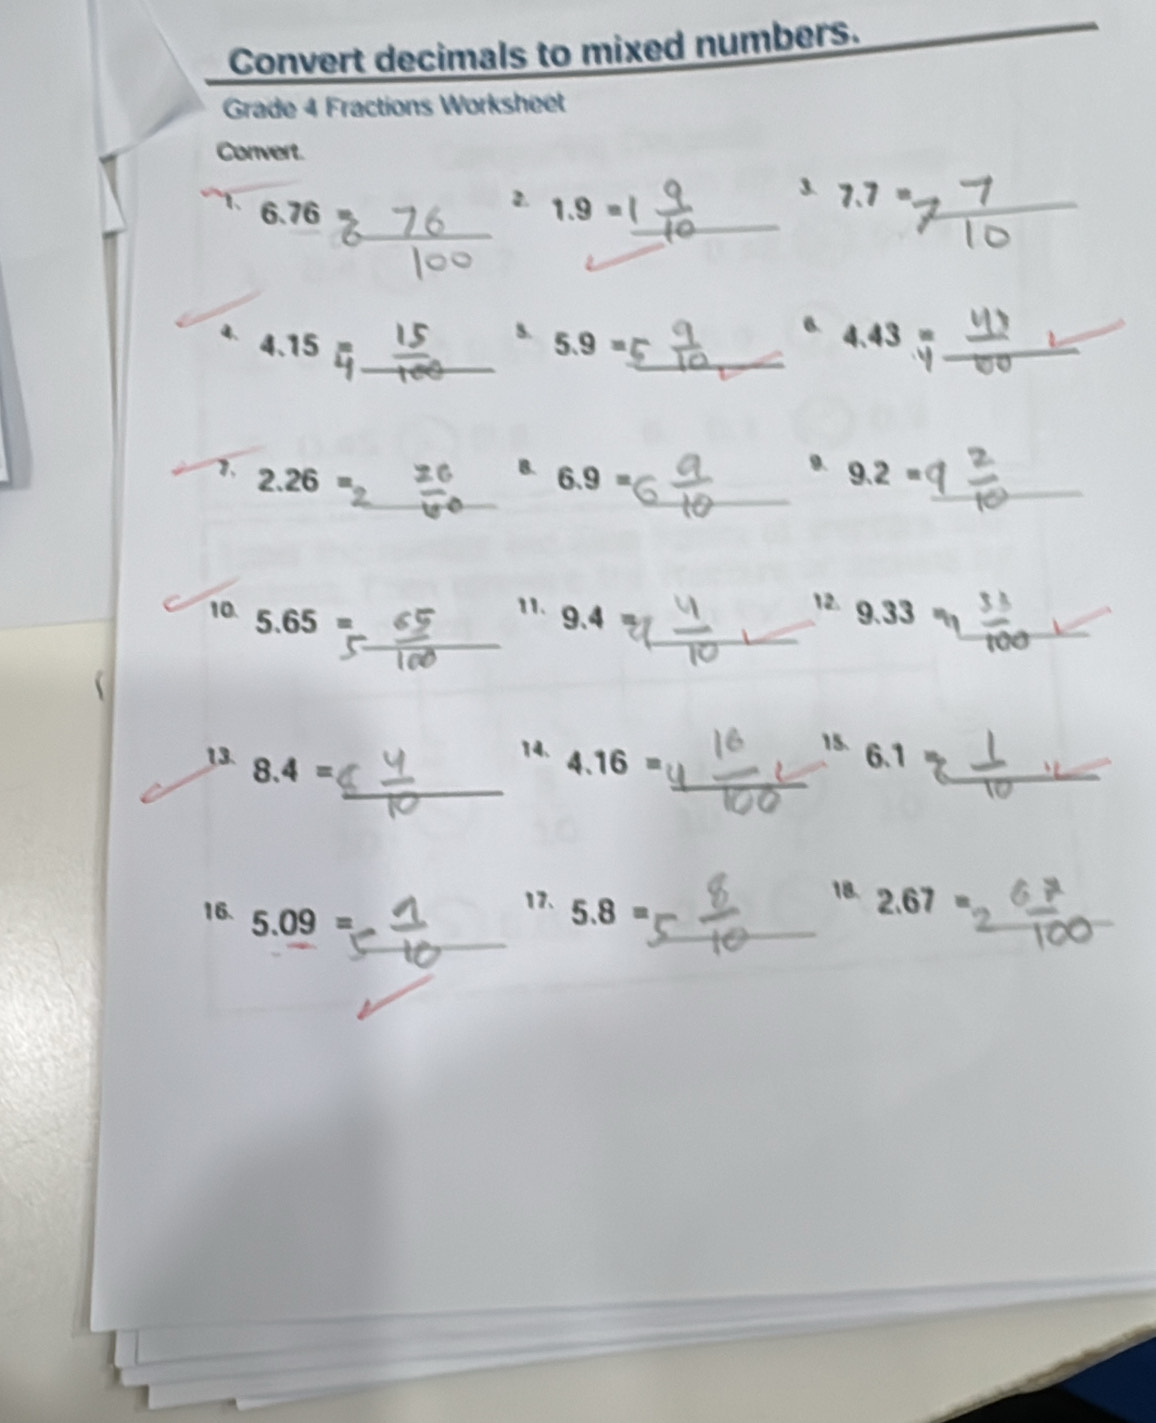 Convert decimals to mixed numbers.
Grade 4 Fractions Worksheet
Convert.
1. 6.76 = 6 76/100 2. 1.9 = 1 9/10 3. 7.7 = 7 7/10
4. 4.15 = 4 15/100 5. 5.9 = 5 9/10 6. 4.43 = 4 43/100
7. 2.26 = 2 26/100 8. 6.9 = 6 9/10 9. 9.2 = 9 2/10
10. 5.65 = 5 65/100 11. 9.4 = 4/10 12. 9.33 = 33/100
13. 8.4 = 4/10 14. 4.16 = 4 16/100 15. 6.1 = 1/10
16. 5.09 = 5 /10 17. 5.8 = 5 8/10 18. 2.67 = 2 67/100